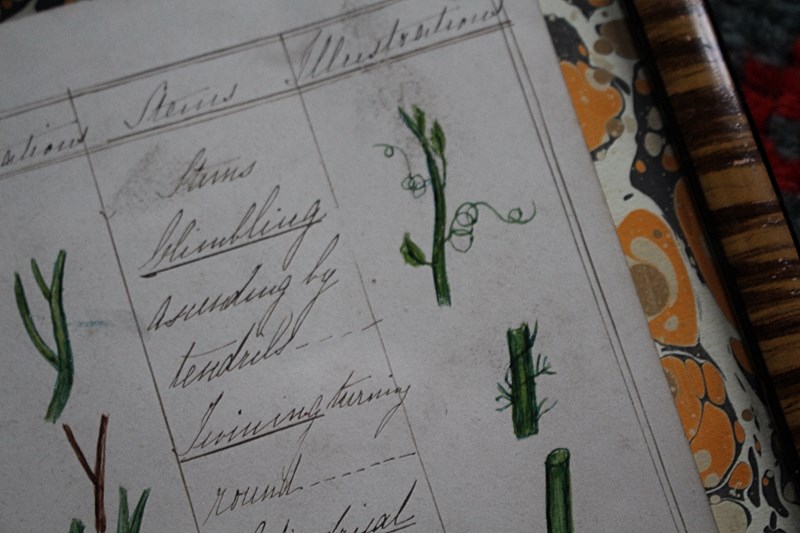 ations Stems Illustrations
Stems
Climbling
ascending by
tendrils - - - -
Twining turning
round - - - - - -